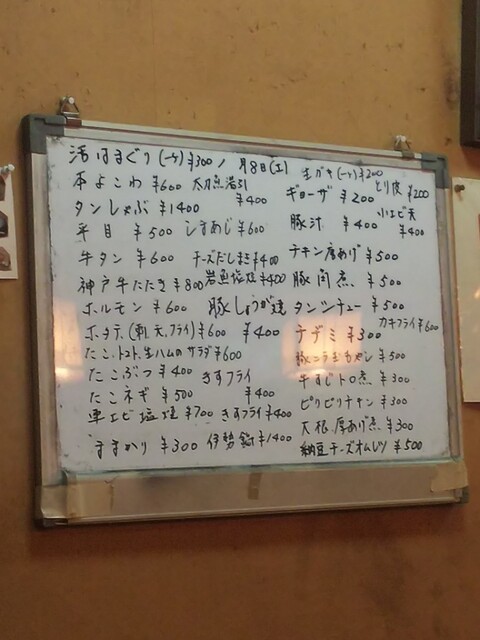 活はまぐり(一ケ)¥300 1月8日(土) 生ガキ(一ケ)¥200
本よこわ ¥600 太刀魚塩引 ¥400 ギョーザ ¥200 とり皮 ¥200
タンしゃぶ ¥1400 豚汁 ¥400 小エビ天 ¥400
平目 ¥500 しまあじ ¥600 チキン唐あげ ¥500
牛タン ¥600 チーズだしまき ¥400 豚角煮 ¥500
神戸牛たたき ¥800 岩魚塩焼 ¥400 タンシチュー ¥500
ホルモン ¥600 豚しょうが焼 ¥400 カキフライ ¥600
ホタテ(刺、天、フライ) ¥600 チヂミ ¥300
たこ、トマト、生ハムのサラダ ¥600 豚ニラ玉もやし ¥500
たこぶつ ¥400 きすフライ ¥400 牛すじトロ煮 ¥300
たこネギ ¥500 ピリピリチキン ¥300
車エビ塩焼 ¥700 きすフライ ¥400 大根厚あげ煮 ¥300
ままかり ¥300 伊勢鍋 ¥1400 納豆チーズオムレツ ¥500